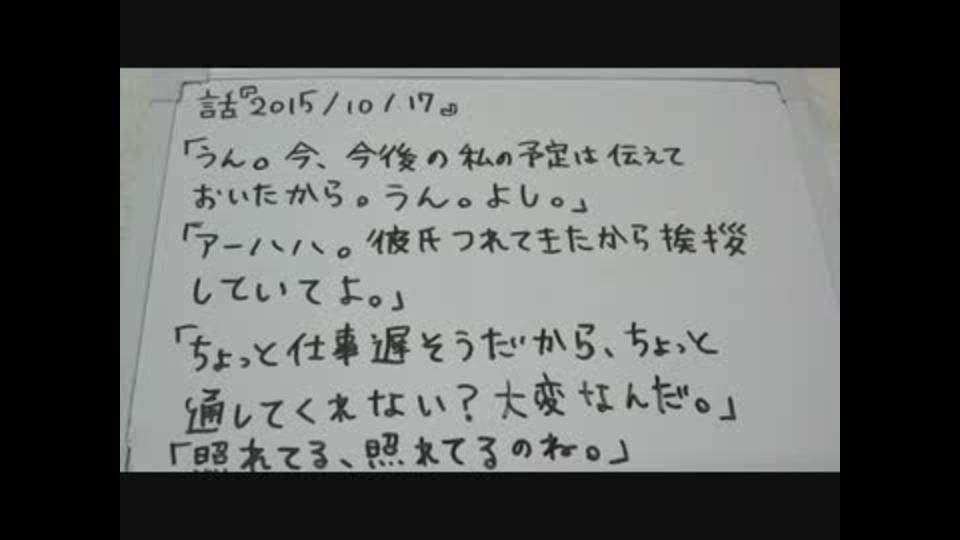 話『2015/10/17』
「うん。今、今後の私の予定は伝えて
おいたから。うん。よし。」
「アーハハ。彼氏つれてきたから挨拶
していてよ。」
「ちょっと仕事遅そうだから、ちょっと
通してくれない？大変なんだ。」
「照れてる、照れてるのね。」